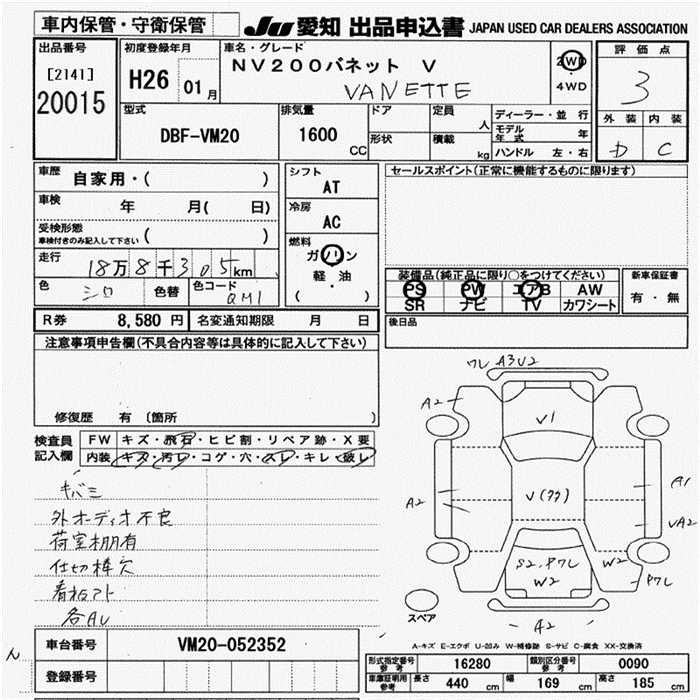 車内保管・守衛保管
JU 愛知 出品申込書 JAPAN USED CAR DEALERS ASSOCIATION
出品番号
[2141]
20015
初度登録年月
H26 01月
車名・グレード
NV200バネット V
VANETTE
2WD
4WD
評価点
3
外装 内装
D C
型式
DBF-VM20
排気量
1600 CC
ドア
形状
定員 人
積載 kg
ディーラー・並行
モデル年式 年
ハンドル 左・右
車歴 自家用・( )
車検 年 月( 日)
受検形態
車検付きのみ記入して下さい ( )
走行 18万8千305km
色 シロ 色替 色コード QM1
シフト
AT
冷房
AC
燃料
ガソリン
軽・油
( )
セールスポイント(正常に機能するものに限ります)
装備品(純正品に限り○をつけてください)
PS PW エアB AW
SR ナビ TV カワシート
新車保証書
有・無
後日品
R券 8,580円 名変通知期限 月 日
注意事項申告欄(不具合内容等は具体的に記入して下さい)
修復歴 有 (箇所 )
検査員記入欄
FW キズ・飛石・ヒビ割・リペア跡・X要
内装 キズ・汚レ・コゲ・穴・スレ・キレ・破レ
キバミ
外オーディオ不良
荷室棚有
仕切棒欠
看板アト
各AU
ワレ A3U2
A2
V1
A2
V(クク)
A1
UA2
S2, P7L
W2
W2
P7L
スペア
A2
A-キズ E-エクボ U-凹み W-補修跡 S-サビ C-腐食 XX-交換済
車台番号 VM20-052352
登録番号
形式指定番号 参考 16280 類別区分番号 参考 0090
車庫証明用 参考 長さ 440 cm 幅 169 cm 高さ 185 cm